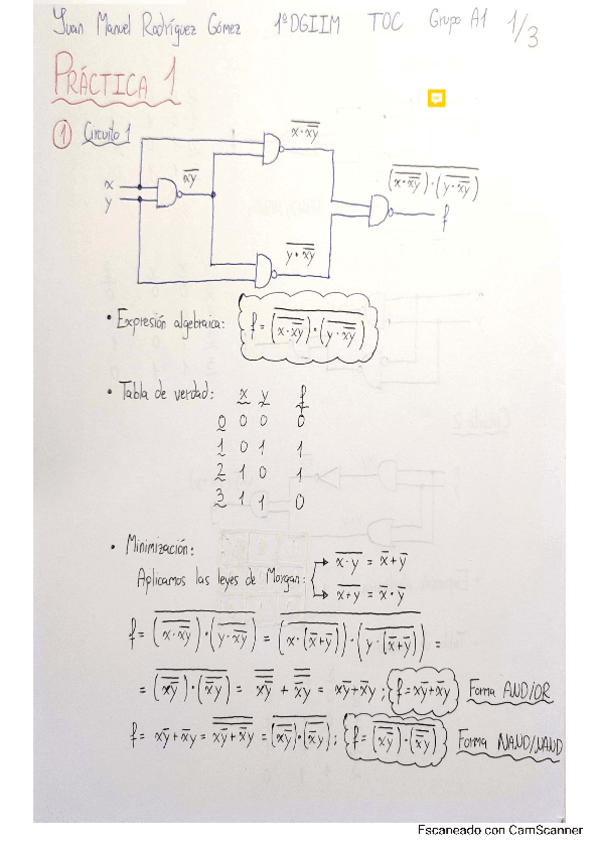 Juan Manuel Rodríguez Gómez 1ºDGIIM TOC Grupo A1 1/3
PRÁCTICA 1
① Circuito 1
x
y
x̅y̅
x̅ ̅·̅ ̅x̅y̅
y̅ ̅·̅ ̅x̅y̅
(x·x̅y̅)·(y·x̅y̅)
f
• Expresión algebraica: f = (x·x̅y̅)·(y·x̅y̅)
• Tabla de verdad: x y f
0 0 0 0
1 0 1 1
2 1 0 1
3 1 1 0
• Minimización:
x̅·̅y̅ = x̅+y̅
Aplicamos las leyes de Morgan:
x̅+̅y̅ = x̅·y̅
f = (x·x̅y̅)·(y·x̅y̅) = (x·(x̅+y̅))·(y·(x̅+y̅)) =
= (xy̅)·(x̅y) = xy̅ + x̅y = xy̅+x̅y ; f=xy̅+x̅y Forma AND/OR
f = xy̅+x̅y = xy̅+x̅y = (xy̅)·(x̅y) ; f = (xy̅)·(x̅y) Forma NAND/NAND
Escaneado con CamScanner